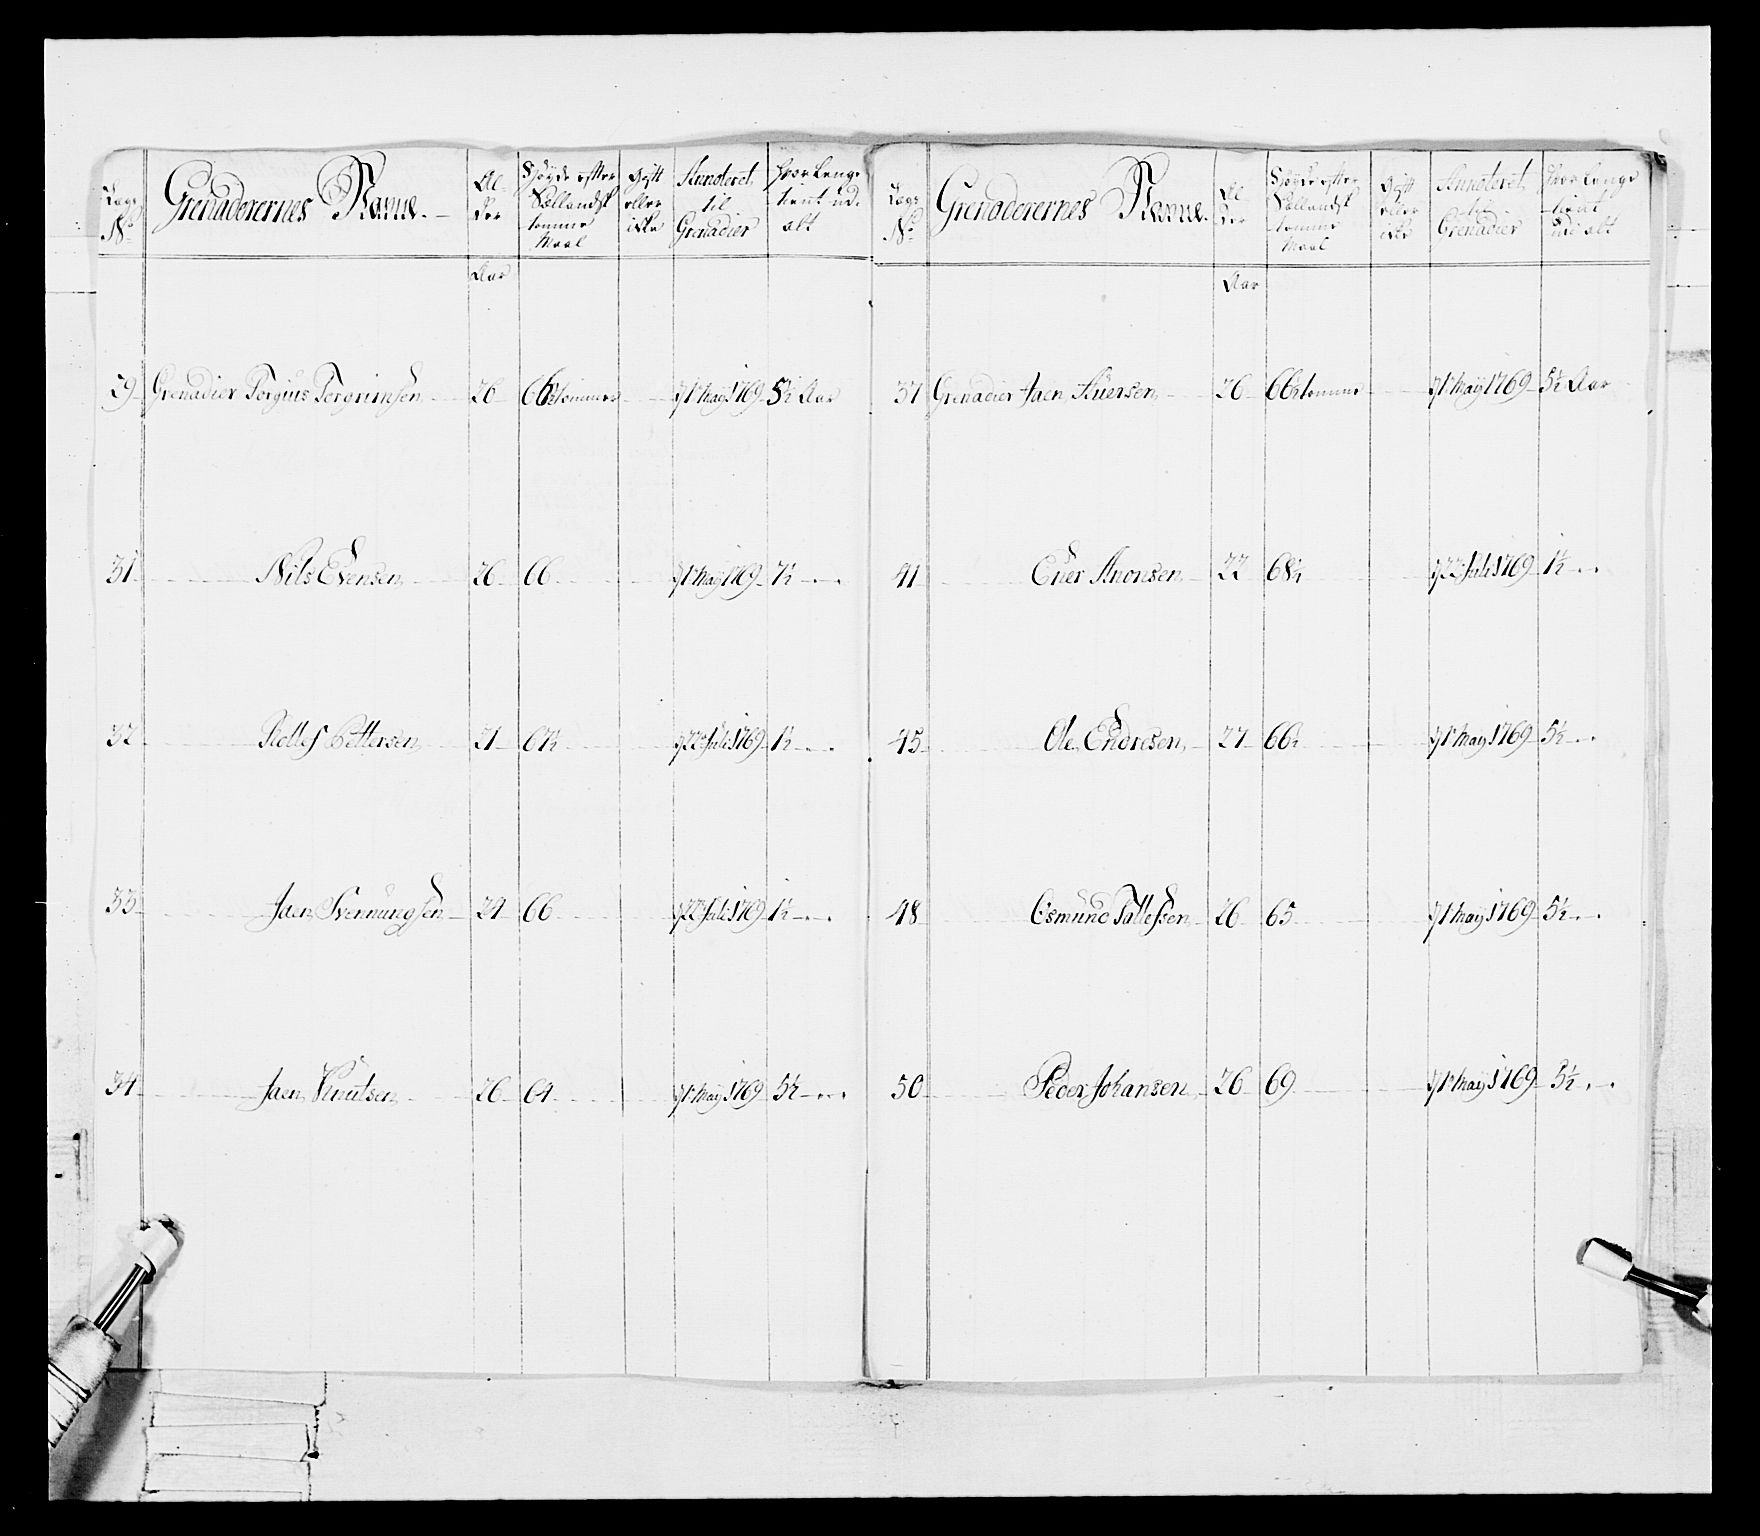 Lægs No
Grenaderernes Navne.
Al-
der
Høyde efter
Siellandsk
tomme
Maal
Gift
eller
ikke
Annoteret
til
Grenadier
Hvor Længe
tient ud.
alt
Aar
29 Grenadier Torgius Torgrimsen 26 66½ tommer d 1te May 1769 5½ Aar
31 Nils Evensen 26 66 d 1te May 1769 7½
32 Pettersen 21 67½ d 22de Juli 1769 1½
33 Jaen Svennungsen 24 66 d 22de Juli 1769 1½
34 Jaen Knutsen 26 64 d 1te May 1769 5½
Lægs No
Grenaderernes Navne.
Al-
der
Høyde efter
Siellandsk
tomme
Maal
Gift
eller
ikke
Annoteret
til
Grenadier
Hvor Længe
tient
udi alt
Aar
37 Grenadier Jaen 26 66½ tomme d 1te May 1769 5½ Aar
41 Ener Anonsen 22 68½ d 22de Juli 1769 1½
45 Ole Endresen 27 66½ d 1te May 1769 5½
48 Osmund Tallefsen 26 65 d 1te May 1769 5½
50 Peder Johansen 26 69 d 1te May 1769 5½